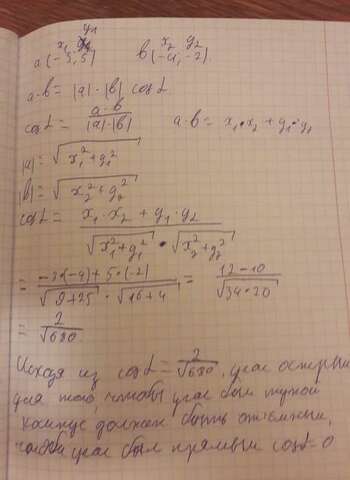 x₁ y₁ x₂ y₂
a (-3, 5) b (-4, -2)
a·b = |a|·|b| cos α.
cos α = a·b / |a|·|b| a·b = x₁·x₂ + y₁·y₂
|a| = √(x₁² + y₁²)
|b| = √(x₂² + y₂²)
cos α = x₁·x₂ + y₁·y₂ / √(x₁² + y₁²) · √(x₂² + y₂²)
= -3·(-4) + 5·(-2) / √(9+25) · √(16+4) = 12-10 / √(34·20)
= 2 / √680
Исходя из cos α = 2/√680, угол острый
для того, чтобы угол был тупой
косинус должен быть отрицательным,
чтобы угол был прямым cos α = 0